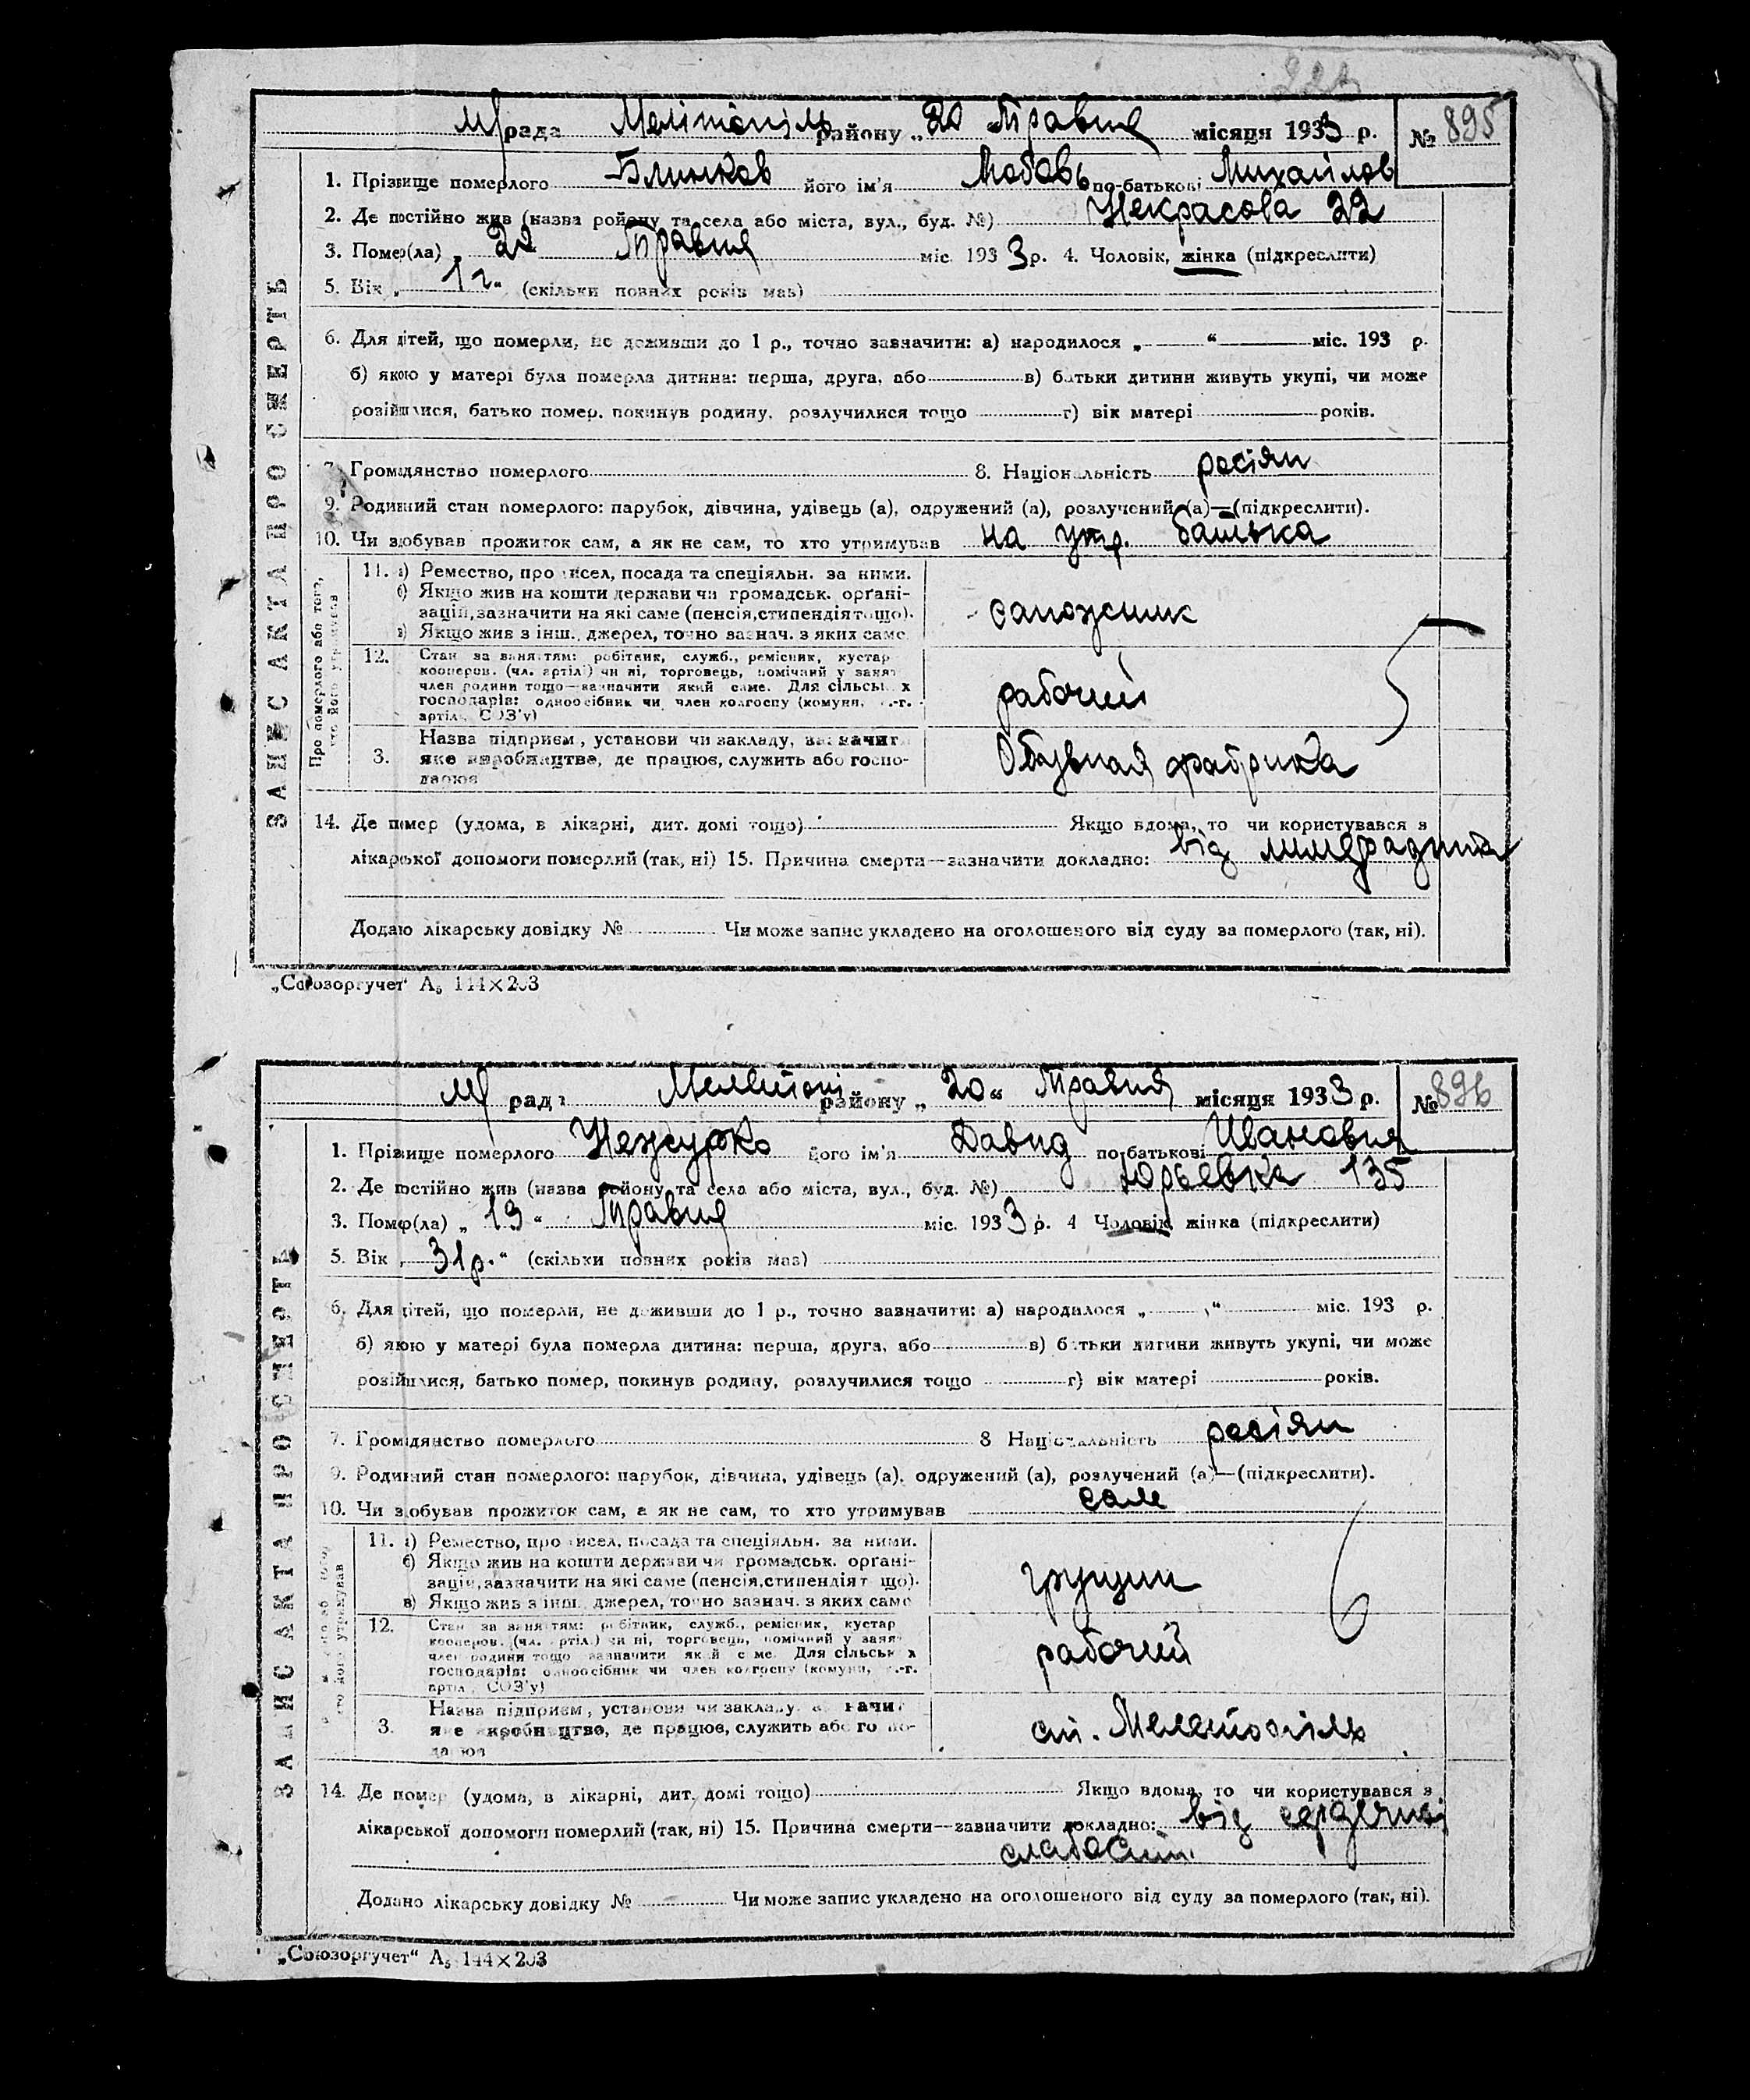 М/рада Мелітопіль району „20 Травня місяця 1933 р. № 895
1. Прізвище померлого Блинков його ім'я Любовь по-батькові Михайлов
2. Де постійно жив (назва району та села або міста, вул., буд. №) Некрасова 22
3. Помер(ла) „ Травня міс. 1933 р. 4. Чоловік, жінка (підкреслити)
5. Вік „1 г“ (скільки повних років мав)
6. Для дітей, що померли, не доживши до 1 р., точно зазначити: а) народилося „ “ міс. 193 р.
б) якою у матері була померла дитина: перша, друга, або в) батьки дитини живуть укупі, чи може
розійшлися, батько помер, покинув родину, розлучилися тощо г) вік матері років.
7. Громадянство померлого 8. Національність росіян
9. Родинний стан померлого: парубок, дівчина, удівець (а), одружений (а), розлучений (а)—(підкреслити).
10. Чи здобував прожиток сам, а як не сам, то хто утримував на утр. батька
ЗАПИС АКТА ПРО СМЕРТЬ
Про померлого або того, хто його утримував
11. а) Ремество, промисел, посада та спеціяльн. за ними.
б) Якщо жив на кошти держави чи громадськ. органі-
зацій, зазначити на які саме (пенсія, стипендія тощо).
в) Якщо жив з інш. джерел, точно зазнач. з яких саме
сапожник
12. Стан за заняттям: робітник, служб., ремісник, кустар
кооперов. (чл. артілі) чи ні, торговець, помічний у занят
член родини тощо—зазначити який саме. Для сільськ х
господарів: одноосібник чи член колгоспу (комуни, с.-г.
артіл, СОЗ'у)
рабочий
5
3. Назва підприєм, установи чи закладу, зазначит
яке виробництво, де працює, служить або госпо-
дарює
Обувная фабрика
14. Де помер (удома, в лікарні, дит. домі тощо) Якщо вдома, то чи користувався з
лікарської допомоги померлий (так, ні) 15. Причина смерти—зазначити докладно: від
Додаю лікарську довідку № Чи може запис укладено на оголошеного від суду за померлого (так, ні).
„Союзоргучет“ А₅ 144×203
М/ рада Мелітопі району „20“ Травня місяця 1933 р. № 896
1. Прізвище померлого його ім'я Давид по батькові Иванович
2. Де постійно жив (назва району та села або міста, вул., буд. №) Юрьевка 135
3. Помер(ла) „19“ Травня міс. 1933 р. 4 Чоловік, жінка (підкреслити)
5. Вік „31р.“ (скільки повних років мав)
6. Для дітей, що померли, не доживши до 1 р., точно зазначити: а) народилося „ “ міс. 193 р.
б) якою у матері була померла дитина: перша, друга, або в) батьки дитини живуть укупі, чи може
розійшлися, батько помер, покинув родину, розлучилися тощо г) вік матері років.
7. Громадянство померлого 8 Національність росіян
9. Родинний стан померлого: парубок, дівчина, удівець (а), одружений (а), розлучений (а)—(підкреслити).
10. Чи здобував прожиток сам, а як не сам, то хто утримував сам
ЗАПИС АКТА ПРО СМЕРТЬ
11. а) Ремество, промисел, посада та спеціяльн. за ними.
б) Якщо жив на кошти держави чи громадськ. органі-
зацій, зазначити на які саме (пенсія, стипендія тощо).
в) Якщо жив з інш. джерел, точно зазнач. з яких саме
грущик
12. Стан за заняттям: робітник, служб., ремісник, кустар
кооперов. (чл. артіл.) чи ні, торговець, помічний у занят
член родини тощо зазначити який саме Для сільськ х
господарів: одноосібник чи член колгоспу (комуни, с.-г.
артіл, СОЗ'у)
рабочий
6
3. Назва підприєм, установи чи закладу, зазначит
яке виробництво, де працює, служить або госпо-
дарює
ст. Мелетопіль
14. Де помер (удома, в лікарні, дит. домі тощо) Якщо вдома, то чи користувався з
лікарської допомоги померлий (так, ні) 15. Причина смерти—зазначити докладно: від сердечної
слабости
Додано лікарську довідку № Чи може запис укладено на оголошеного від суду за померлого (так, ні).
„Союзоргучет“ А₅ 144×203